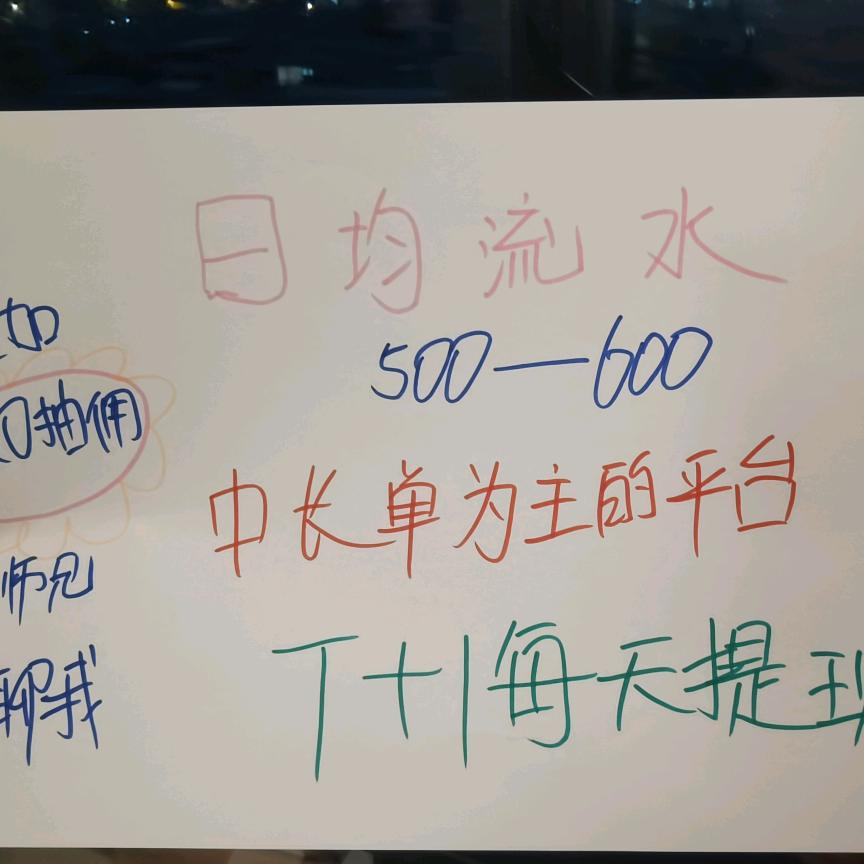 加
0抽佣
师兄
聊我
日均流水
500—600
中长单为主的平台
T+1每天提现